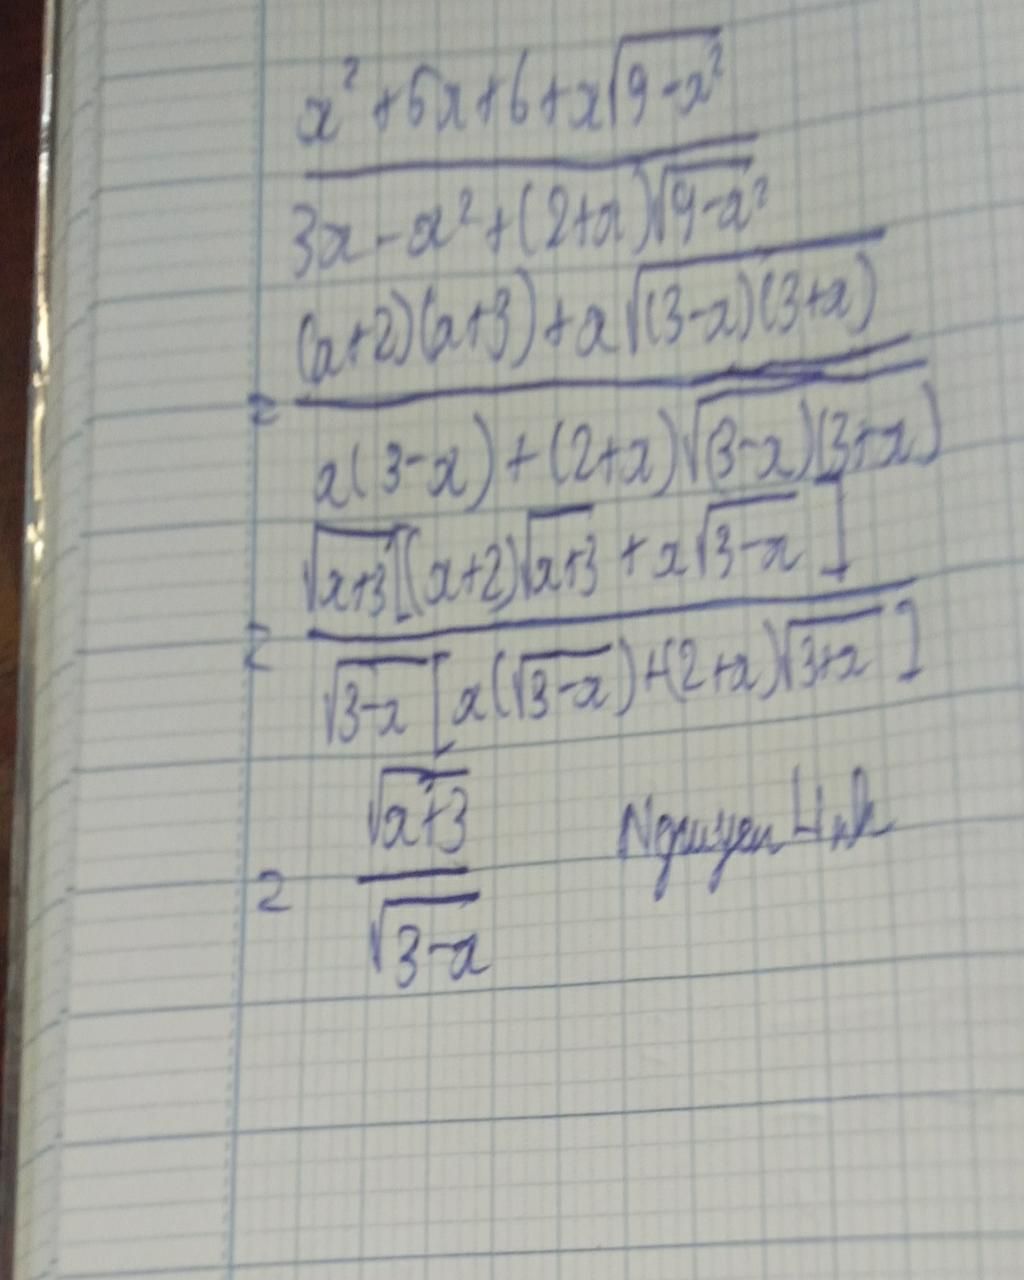 x² + 5x + 6 + x√(9-x²)
3x - x² + (2+x)√(9-x²)
(x+2)(x+3) + x√((3-x)(3+x))
=
x(3-x) + (2+x)√((3-x)(3+x))
√(x+3) [(x+2)√(x+3) + x√(3-x)]
=
√(3-x) [x(√(3-x)) + (2+x)√(3+x)]
√(x+3)
= Nguyen Linh
√(3-x)